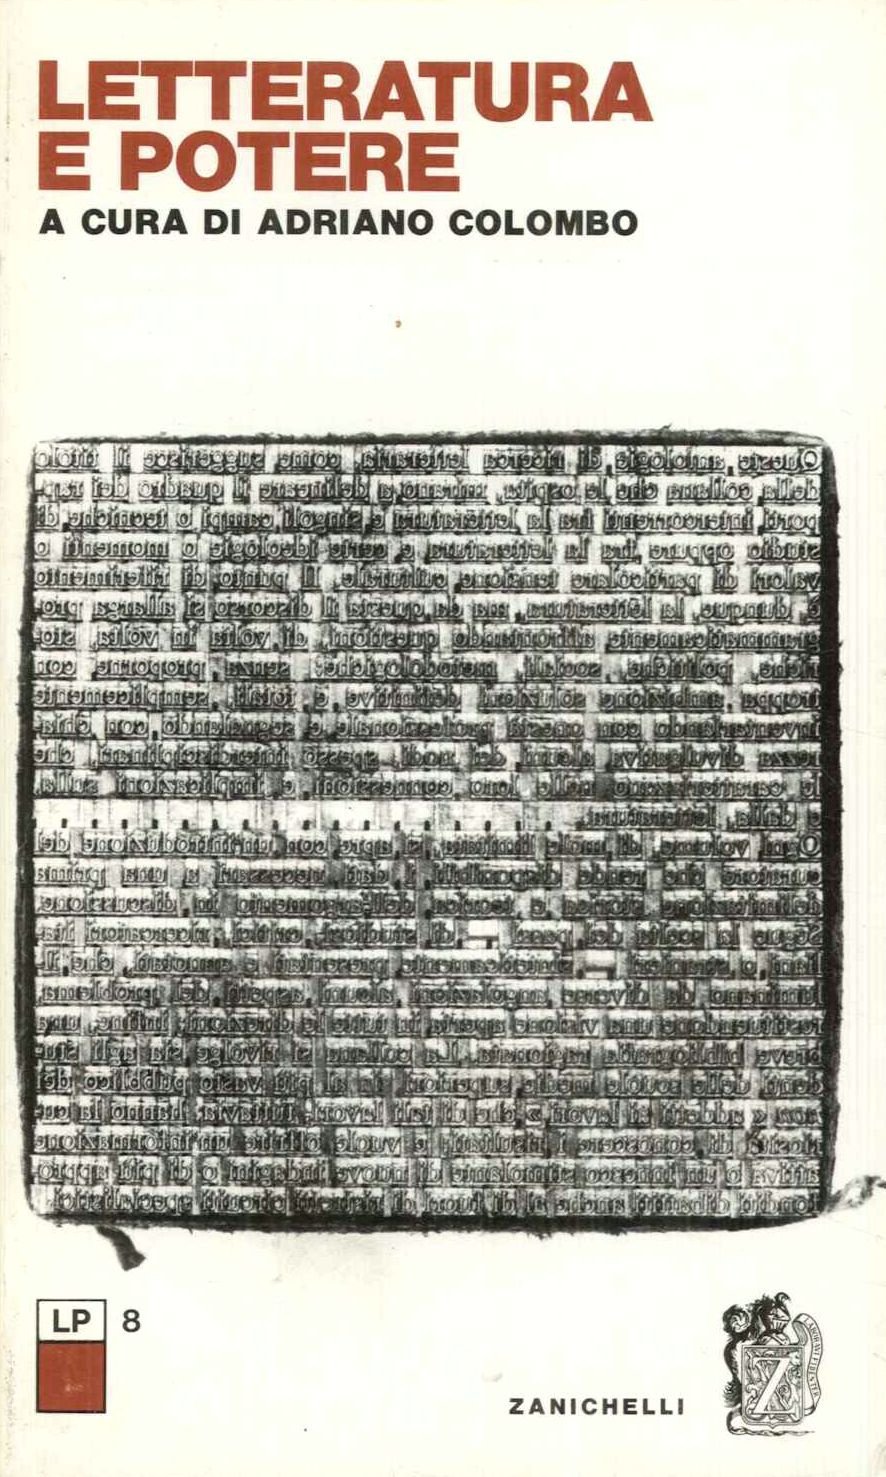 LETTERATURA
E POTERE
A CURA DI ADRIANO COLOMBO
Queste antologie di ricerca letteraria, come suggerisce il titolo
della collana che le ospita, mirano a delineare il quadro dei rap-
porti intercorrenti tra la letteratura e singoli campi o tecniche di
studio oppure tra la letteratura e certe ideologie o momenti o
valori di particolare tensione culturale. Il punto di riferimento
è, dunque, la letteratura, ma da questa il discorso si allarga pro-
grammaticamente affrontando questioni, di volta in volta, sto-
riche, politiche, sociali, metodologiche: senza proporre con
troppa ambizione soluzioni definitive e totali, semplicemente
inventariando con onestà professionale e segnalando, con chia-
rezza divulgativa alcuni dei nodi, spesso interdisciplinari, che
le caratterizzano nelle loro connessioni e implicazioni sulla
e dalla letteratura.
Ogni volume, di mole limitata, si apre con un'introduzione del
curatore che rende disponibili i dati necessari a una prima
delimitazione storica e teorica dell'argomento in discussione.
Segue la scelta dei passi di studiosi, critici,
liani o stranieri sinteticamente presentati e annotati, che il-
luminano da diverse angolazioni alcuni aspetti del problema,
restituendone una visione aperta in tutte le direzioni; infine, una
breve bibliografia ragionata. La collana si rivolge sia agli stu-
denti delle scuole medie superiori sia al più vasto pubblico dei
non « addetti ai lavori » che di tali lavori, tuttavia, hanno la cu-
riosità di conoscere i risultati, e vuole offrire un'informazione
attiva o un innesco stimolante di nuove indagini o di più appro-
fonditi dibattiti anche al di fuori di ristretti circuiti specialistici.
LP 8
ZANICHELLI
LABORAVI FIDENTER
Z